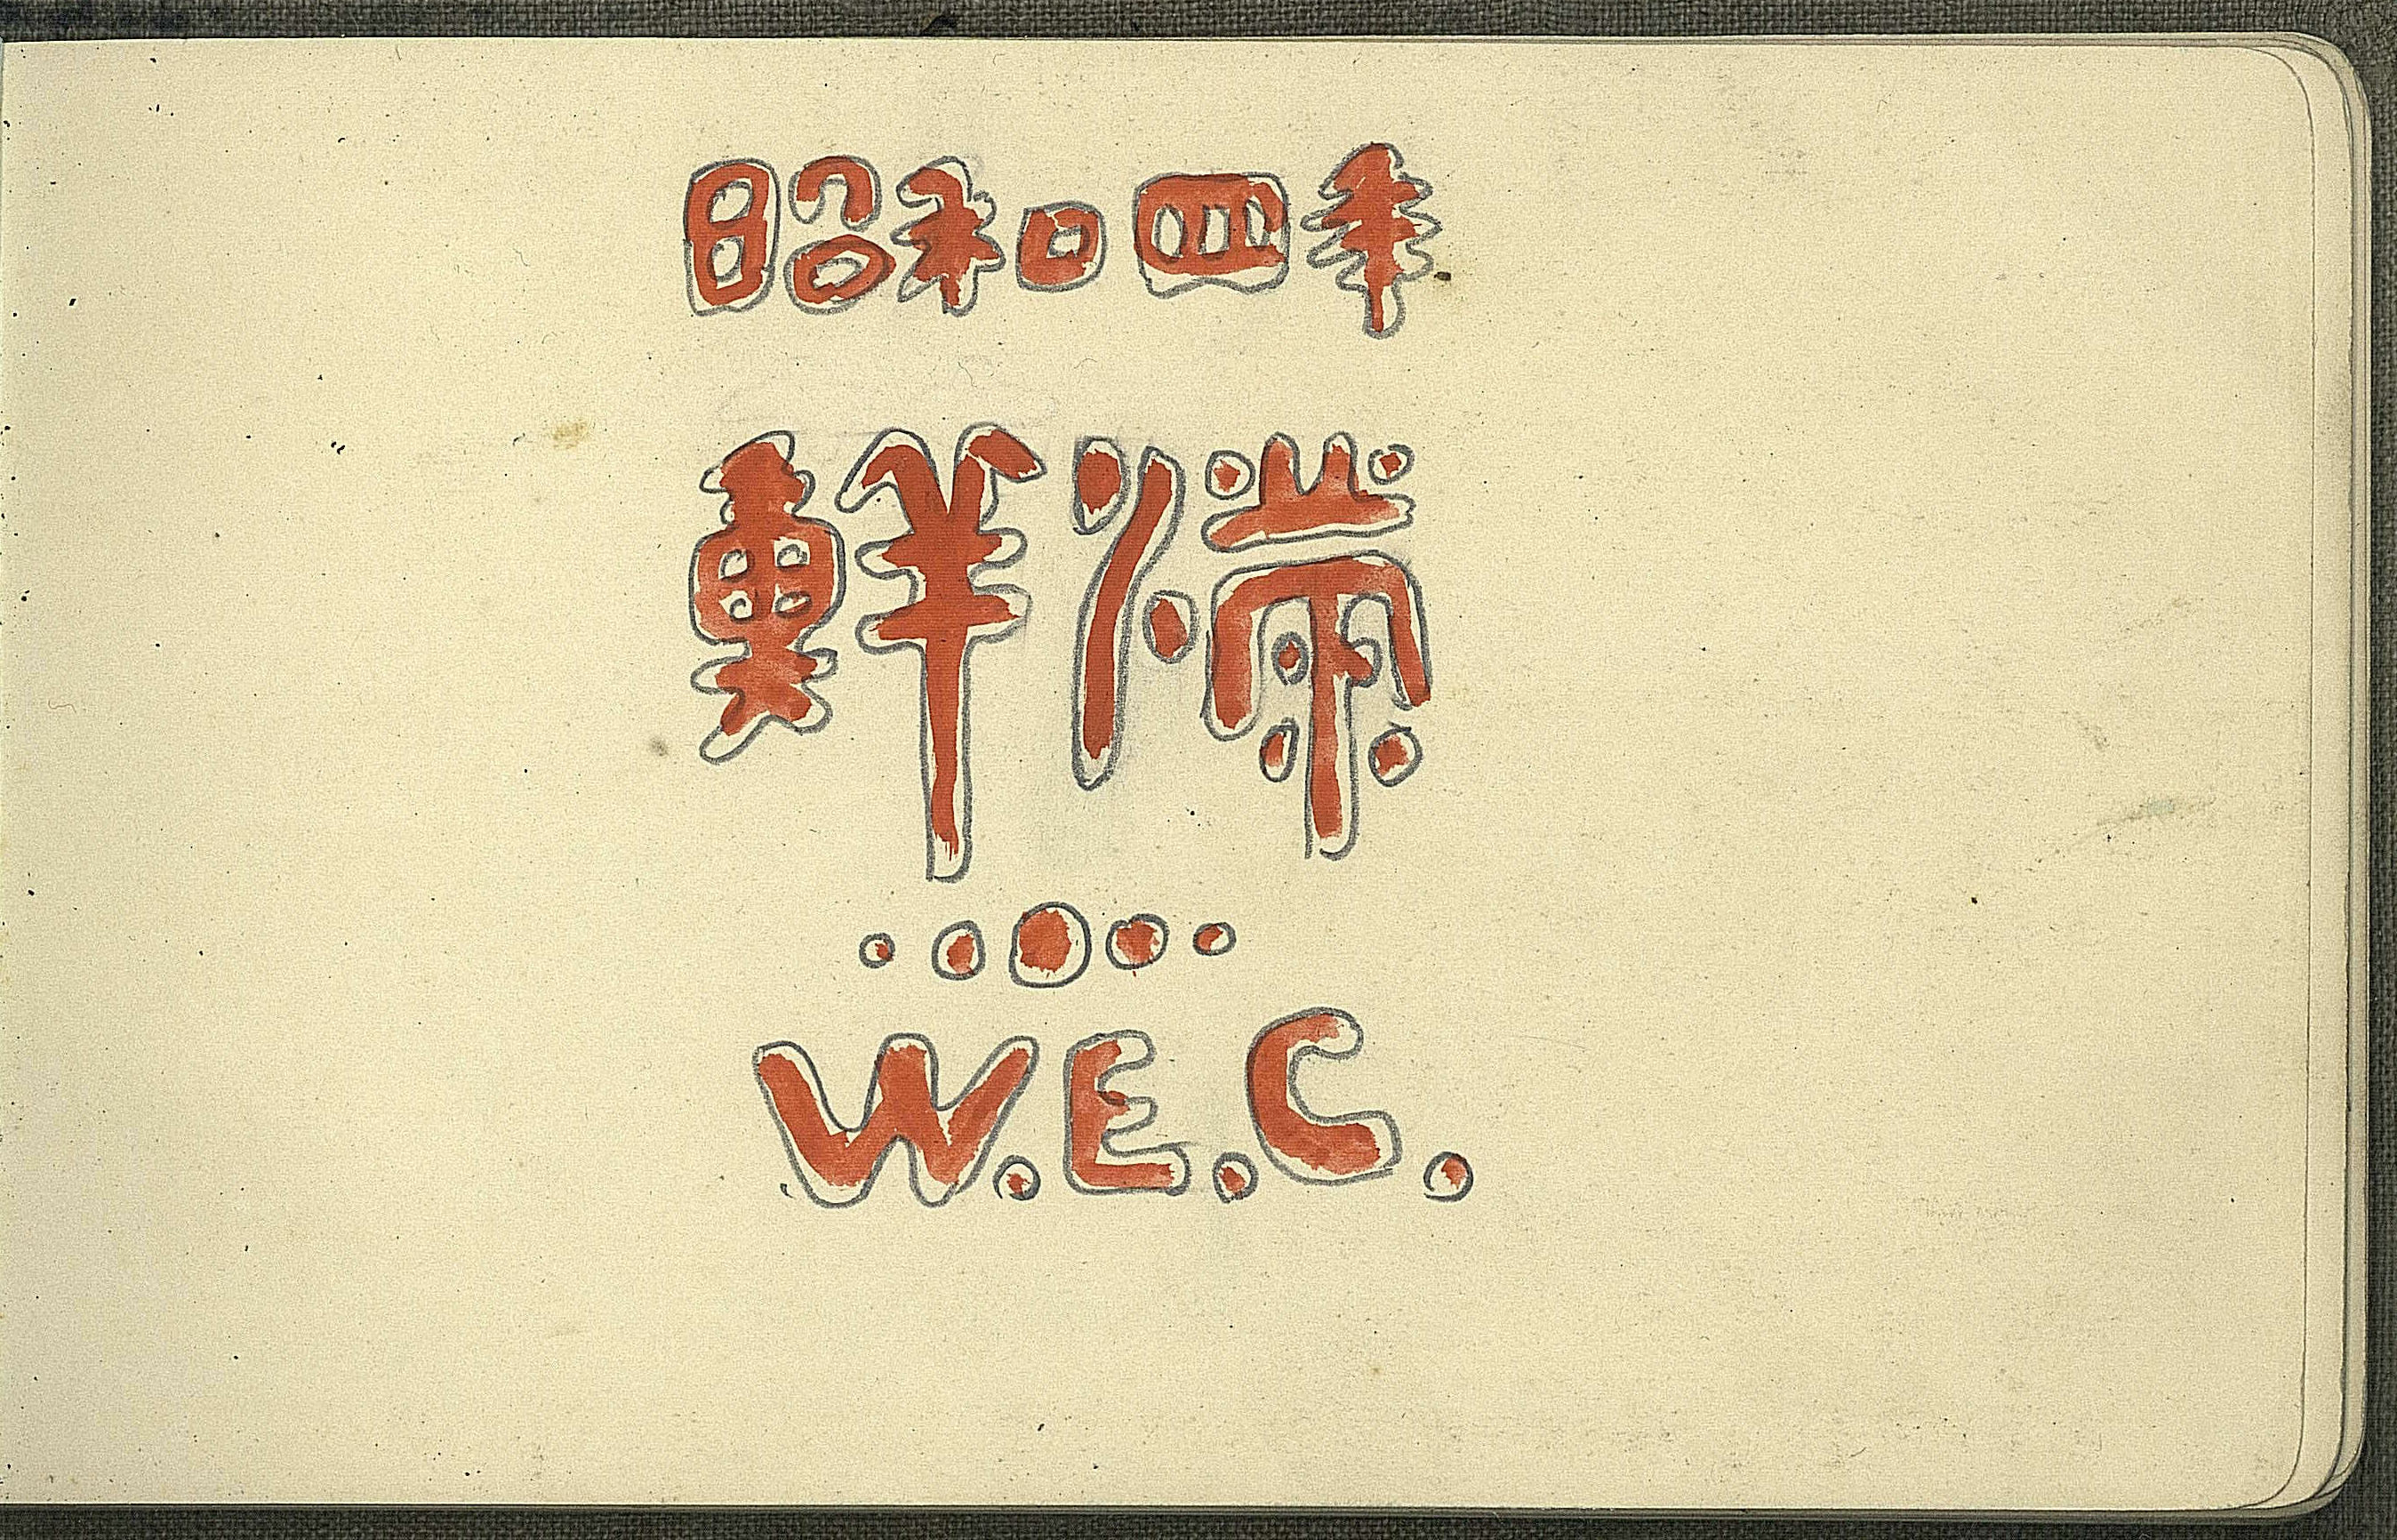 昭和四年
鮮滿
W.E.C.